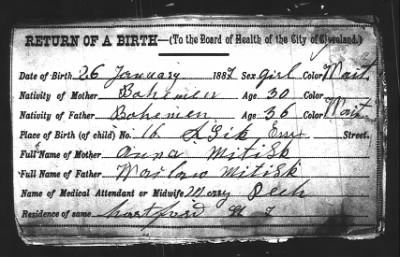 RETURN OF A BIRTH—(To the Board of Health of the City of Cleveland.)
Date of Birth, 26 January 1887 Sex girl Color Wait.
Nativity of Mother Bohemen Age 30 Color Wait
Nativity of Father Bohemen Age 36
Place of Birth (of child) No. 16 Street.
Full Name of Mother Anna Mitisk
Full Name of Father Mitisk
Name of Medical Attendant or Midwife Pech
Residence of same